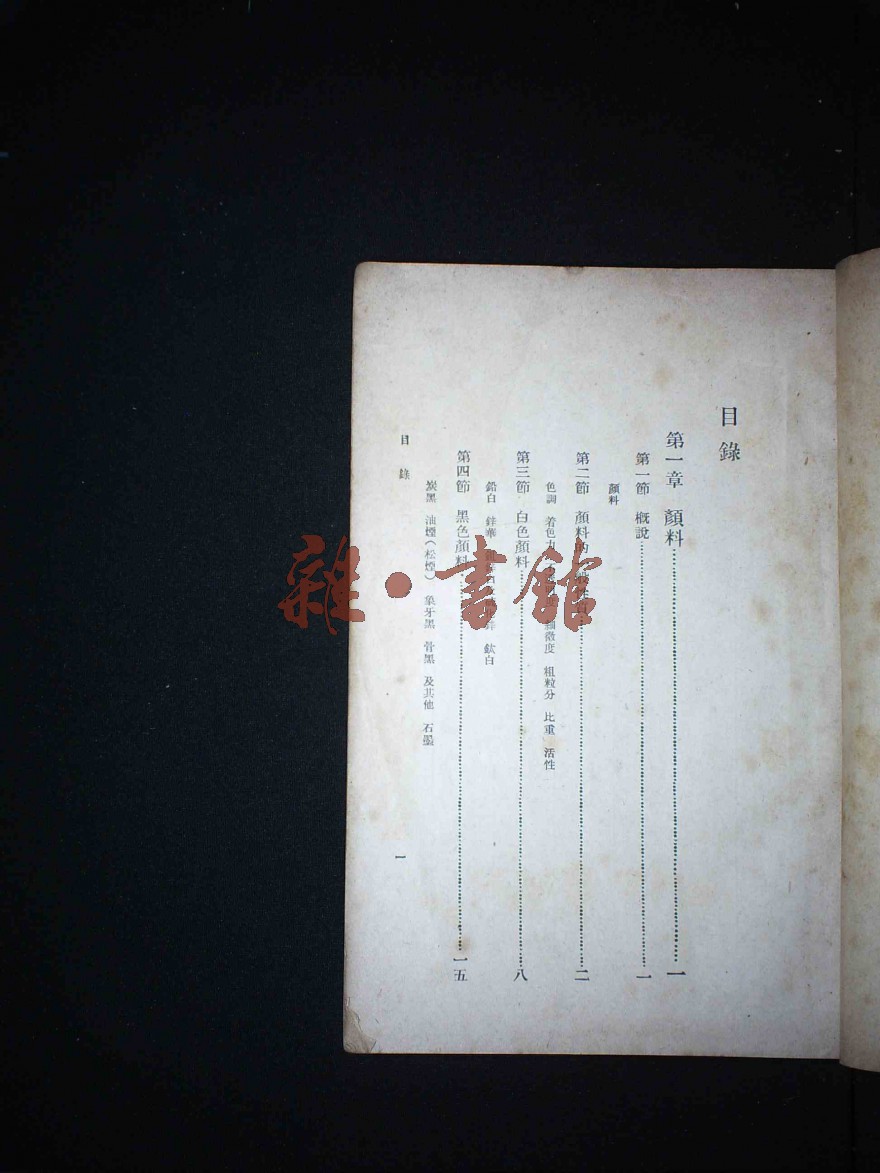 目錄
第一章 顏料……一
第一節 概說……一
顏料
第二節 顏料的……二
色調 着色力 顯微度 粗粒分 比重 活性
第三節 白色顏料……八
鉛白 鋅華 鈦白
第四節 黑色顏料……一五
炭黑 油煙(松煙) 象牙黑 骨黑 及其他 石墨
目錄
一
雜·書館